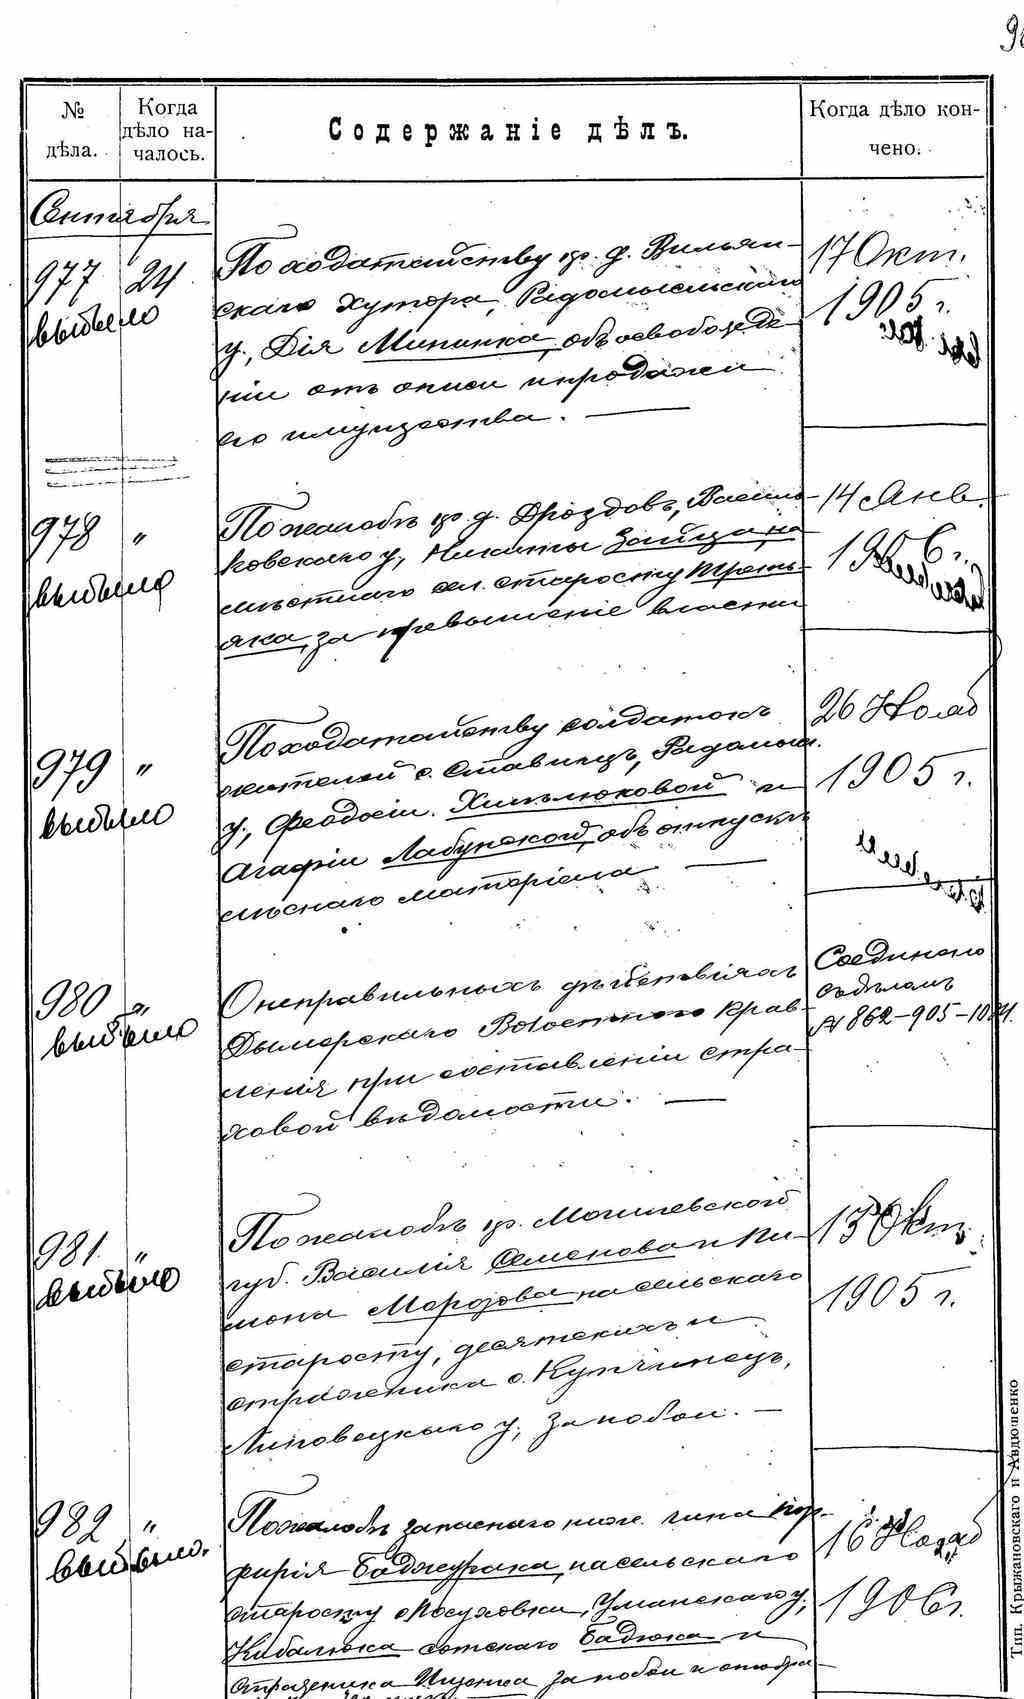 № дѣла.
Когда дѣло началось.
Содержаніе дѣлъ.
Когда дѣло кончено.
Сентября
977 24
выбыло
По ходатайству кр. д.
скаго хутора, Радомысльскаго
у., Дія Миненка, объ освобожде-
ніи отъ описи и продажи
его имущества. —
17 Окт.
1905 г.
978 "
выбыло
По жалобѣ кр. д. Дроздовъ, Василь-
ковскаго у., Никиты Зайца, на
мѣстнаго сел. старосту Треть-
яка, за превышеніе власти
14 Янв.
1906 г.
979 "
выбыло
По ходатайству солдатокъ
жителей с. Ставищъ, Радомысл.
у., Феодосіи и
Агафіи Лабунской, объ отпускѣ
лѣснаго матеріала —
26 Нояб
1905 г.
980 "
выбыло
О неправильныхъ дѣйствіяхъ
Дымерскаго Волостного Прав-
ленія при составленіи стра-
ховой вѣдомости. —
Соединено
съ дѣломъ
№ 862-905-
981 "
выбыло
По жалобѣ кр. Могилевской
губ. Василія Семенова и Пи-
мона Морозова на сельскаго
старосту, десятскихъ и
стражника с. Купчинецъ,
Липовецкаго у., за побои. —
Окт.
1905 г.
982 "
выбыло.
По жалобѣ запаснаго ниж. чина Пор-
фирія на сельскаго
старосту с. Посуховки, Уманскаго у.,
Кибалюка сотскаго Бадюка и
стражника Ищенка за побои и
16 Нояб
1906 г.
Тип. Крыжановскаго и Авдюшенко